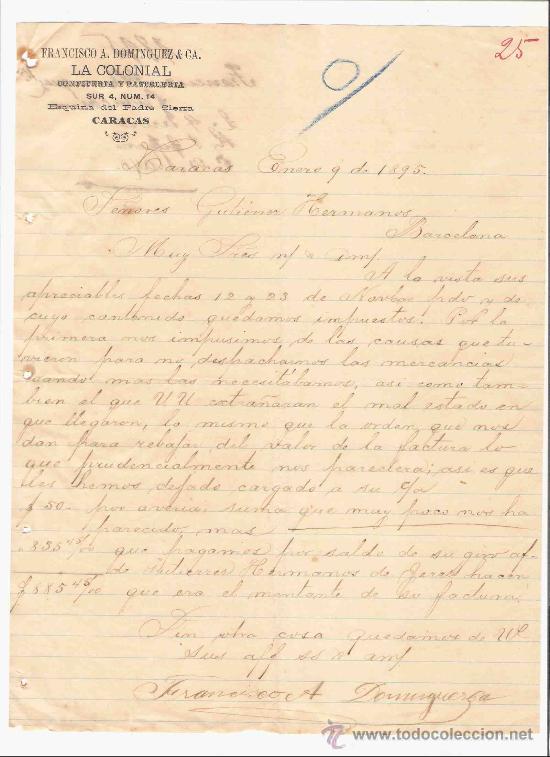 25
FRANCISCO A. DOMINGUEZ & CA.
LA COLONIAL
CONFITERIA Y PASTELERIA
SUR 4, NUM. 14
Esquina del Padre Sierra
CARACAS
Caracas Enero 9 de 1895.
Señores Gutierrez Hermanos
Barcelona
Muy Sres n/ & am/
A la vista sus
apreciables fechas 12 y 23 de Novbre pdo y de
cuyo contenido quedamos impuestos. P. A la
primera nos impusimos, de las causas que tu-
vieron para no despacharnos las mercancias
cuando mas las necesitabamos, asi como tam-
bien el que UU extrañaran el mal estado en
que llegaron, lo mismo que la orden, que nos
dan para rebajar del valor de la factura lo
que prudencialmente nos pareciera; asi es que
les hemos dejado cargado a su c/a
$ 50 - por averia; suma que muy poco nos ha
parecido, mas
" 335 45/00 que pagamos por saldo de su giro a/f
de Gutierrez Hermanos de Jerez hacen
$ 385 45/00 que era el montante de su factura.
Sin otra cosa quedamos de Ud
Sus aff ss & am/
Francisco A Dominguez & Ca
todocoleccion.net